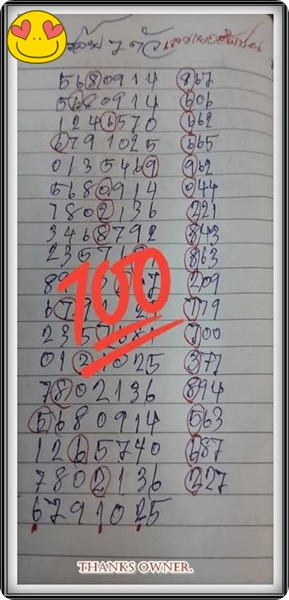 5680914 867
5680914 606
1246570 662
6791025 665
0135469 962
5680914 044
7802136 221
3468792 843
863
209
779
700
012 025 377
7802136 894
5680914 563
1265740 687
7802136 227
6791025
100
THANKS OWNER.